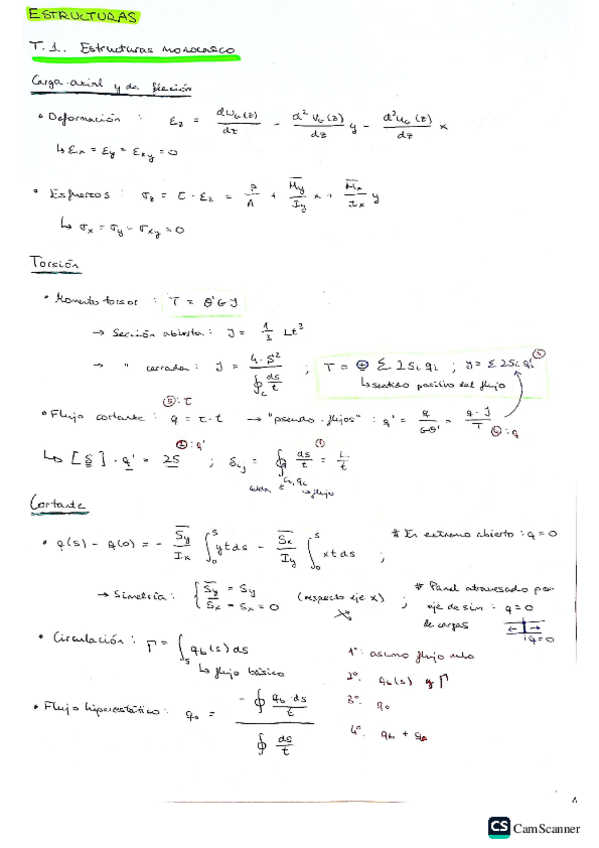 ESTRUCTURAS
T.1. Estructuras monocasco
Carga axial y de flexión
• Deformación : εz = dω₀(z)/dz - d²v₀(z)/dz y - d²u₀(z)/dz x
↳ εx = εy = εxy = 0
• Esfuerzos : σz = E · εz = P/A + M̅y/Iy x + M̅x/Ix y
↳ σx = σy = σxy = 0
Torsión
• Momento torsor : T = θ'GJ
→ Sección abierta : J = 1/3 Lt³
→ " cerrada : J = 4·S²/∮c ds/t ; T = ⊕ Σ 2Si qi ; J = Σ 2Si qi' ④
↳ sentido positivo del flujo
⑤ : τ
• Flujo cortante : q = τ · t → "pseudo-flujos" : q' = q/Gθ' = q·J/T ⑥ : q
↳ [δ] · q' = 2S ; δij = ∮ ds/t = L/t
② : q' ①
flujo
Cortante
• q(s) - q(0) = - S̅y/Ix ∫₀ˢ ytds - S̅x/Iy ∫₀ˢ xtds ; # En extremo abierto : q = 0
→ Simetría : { S̅y = Sy (respecto eje x) ; # Panel atravesado por
S̅x = Sx = 0 eje de sim : q = 0
de cargas
q=0
• Circulación : Γ = ∫s qb(s) ds
↳ flujo básico
1º: asumo flujo nulo
2º: qb(s) y Γ
• Flujo hiperestático : q₀ = - ∮ qb·ds/t / ∮ ds/t
3º: q₀
4º: qb +
CS CamScanner